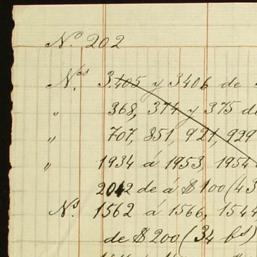 Nº 202
Nºs 3405 y 3406 de
" 368, 374 y 375 d
" 707, 851, 921, 929
" 1934 á 1953, 1954
2042 de á $100 (43
Nºs 1562 á 1566, 1544
de $200 (34 bs)